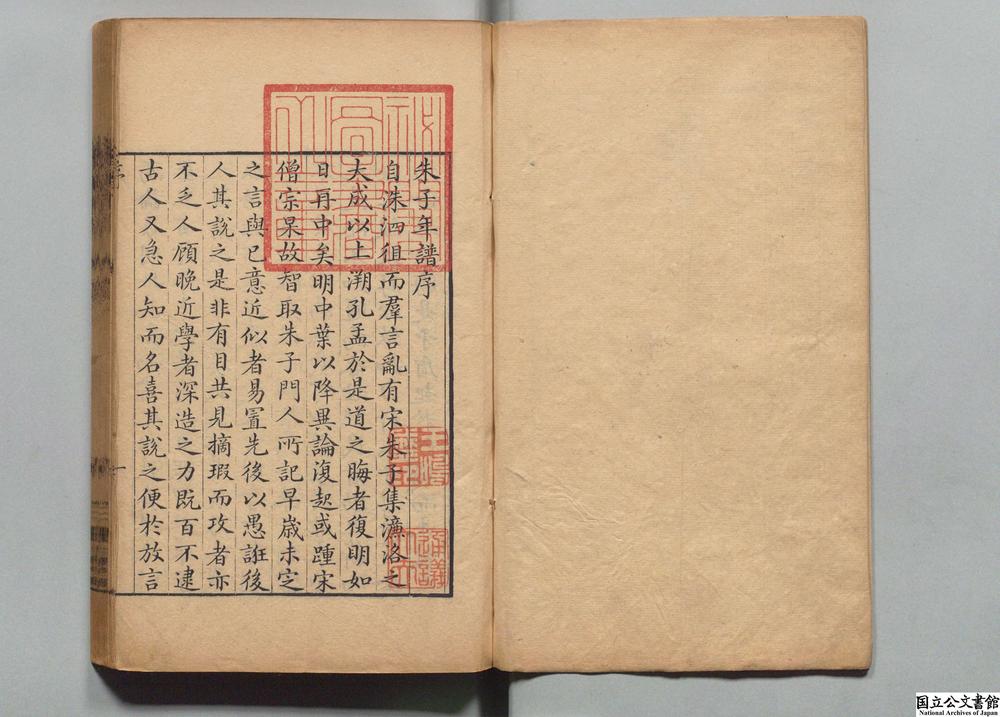 朱子年譜序
自洙泗徂而羣言亂有宋朱子集濂洛之
大成以上溯孔孟於是道之晦者復明如
日再中矣明中葉以降異論復起或踵宋
僧宗杲故智取朱子門人所記早歲未定
之言與已意近似者易置先後以愚誑後
人其說之是非有目共見摘瑕而攻者亦
不乏人顧晚近學者深造之力既百不逮
古人又急人知而名喜其說之便於放言
序
一
国立公文書館
National Archives of Japan